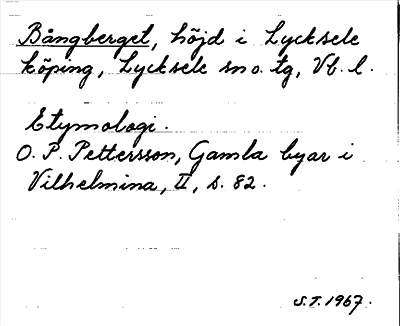 Bångberget, höjd i Lycksele
köping, Lycksele sn o. tg, Vb. l.
Etymologi.
O. P. Pettersson, Gamla byar i
Vilhelmina, II, s. 82.
S.T. 1967.